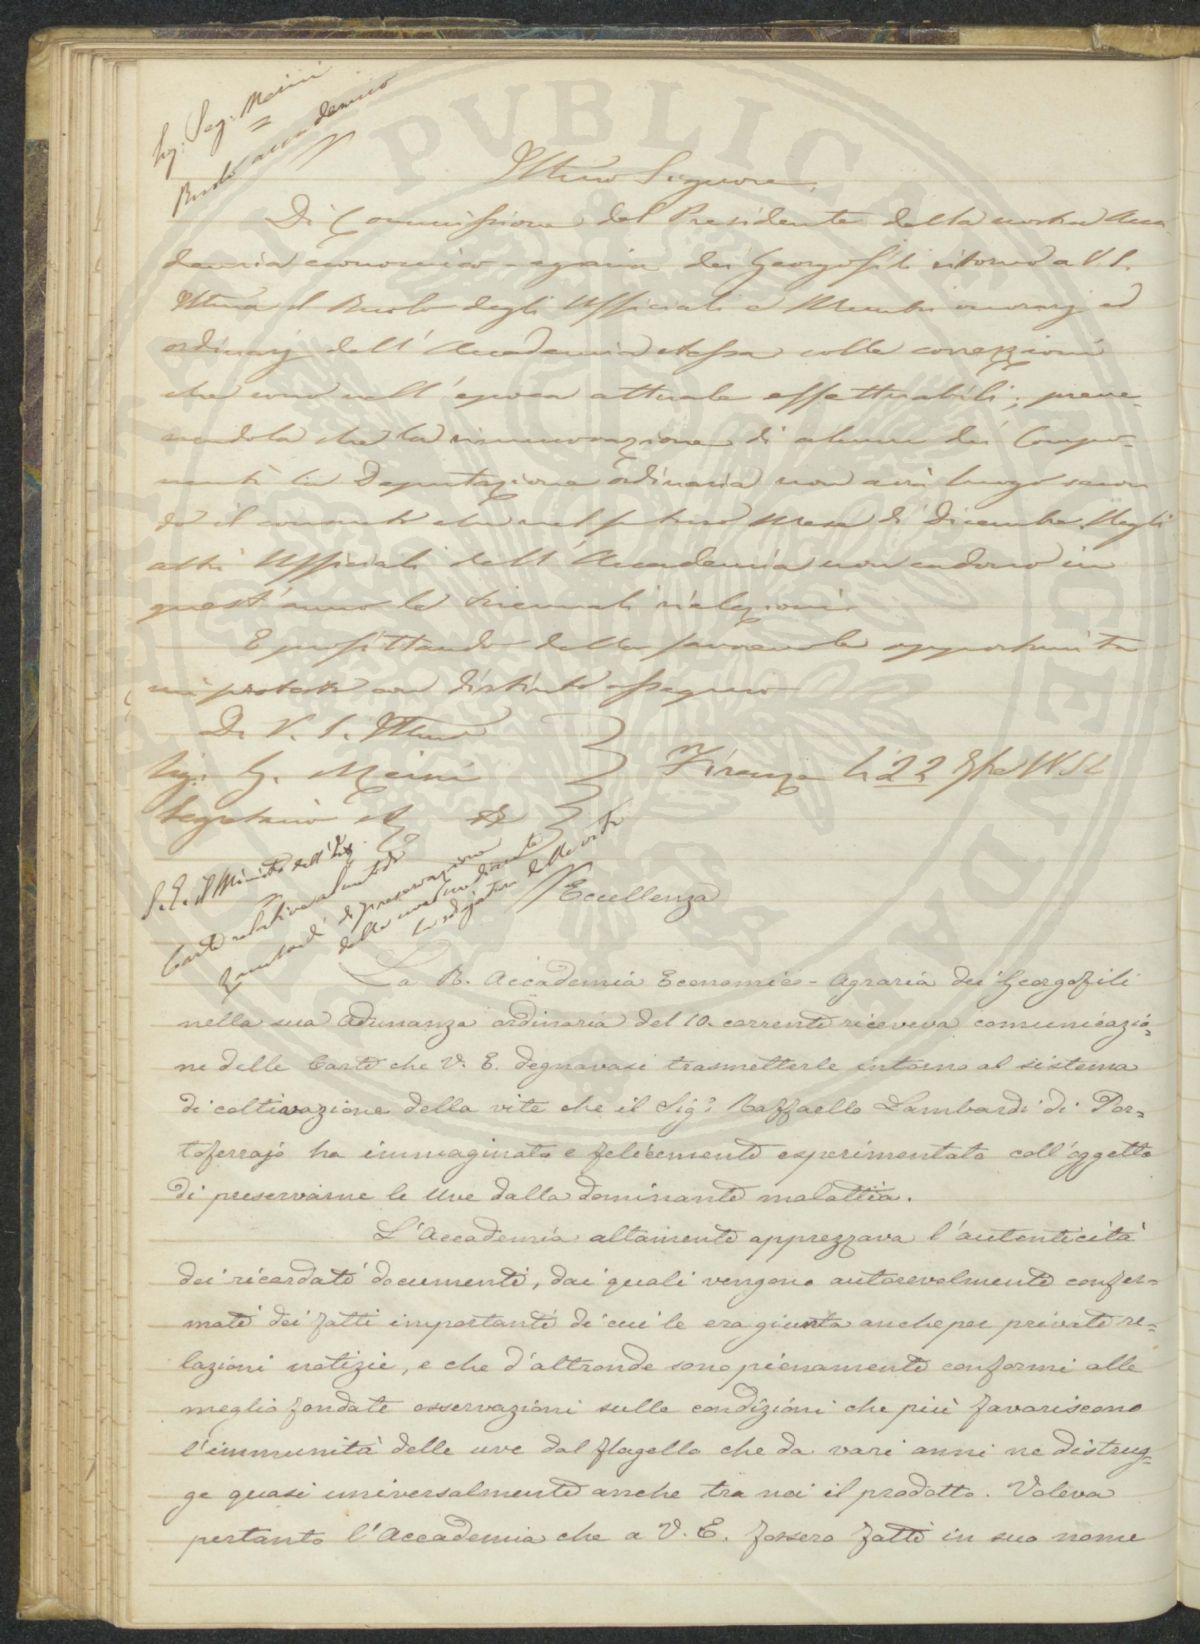 Sig. Seg. Meini
Ruolo accademico
Illmo Signore,
Di Commissione del Presidente della nostra Acca
demia economico-agraria dei Georgofili ritorno a V. S.
Illma il Ruolo degli Uffiziali e Membri onorarj ed
ordinarj dell'Accademia stessa colle correzzioni
che sono nell'epoca attuale effettuabili; preve-
nendola che la rinnuovazione di alcuni dei Compo-
nenti la Deputazione ordinaria non avrà luogo secon
do il consueto che nel futuro Mese di Dicembre. Negli
altri Uffiziali dell'Accademia non cadono in
quest'anno le triennali rielezioni.
E profittando della favorevole opportunità
mi protesto con distinto ossequio
Di V. S. Illma
Sig. G. Meini
Segretario
Firenze li 22
S. E. il Ministro dell'Int.
Carte relative al metodo
Lambardi di preservazione
delle uve
malattia della vite
Eccellenza
La R. Accademia Economico-Agraria dei Georgofili
nella sua Adunanza ordinaria del 10. corrente riceveva comunicazio=
ne delle Carte che V. E. degnavasi trasmetterle intorno al sistema
di coltivazione della vite che il Sig.r Raffaello Lambardi di Por=
toferrajo ha immaginato e felicemente esperimentato coll'oggetto
di preservarne le Uve dalla dominante malattia.
L'Accademia altamente apprezzava l'autenticità
dei ricordati documenti, dai quali vengono autorevolmente confer=
mati dei fatti importanti di cui le era giunta anche per private re=
lazioni notizie, e che d'altronde sono pienamente conformi alle
meglio fondate osservazioni sulle condizioni che più favoriscono
l'immunità delle uve dal flagello che da vari anni ne distrug=
ge quasi universalmente anche tra noi il prodotto. Voleva
pertanto l'Accademia che a V. E. fossero fatti in suo nome